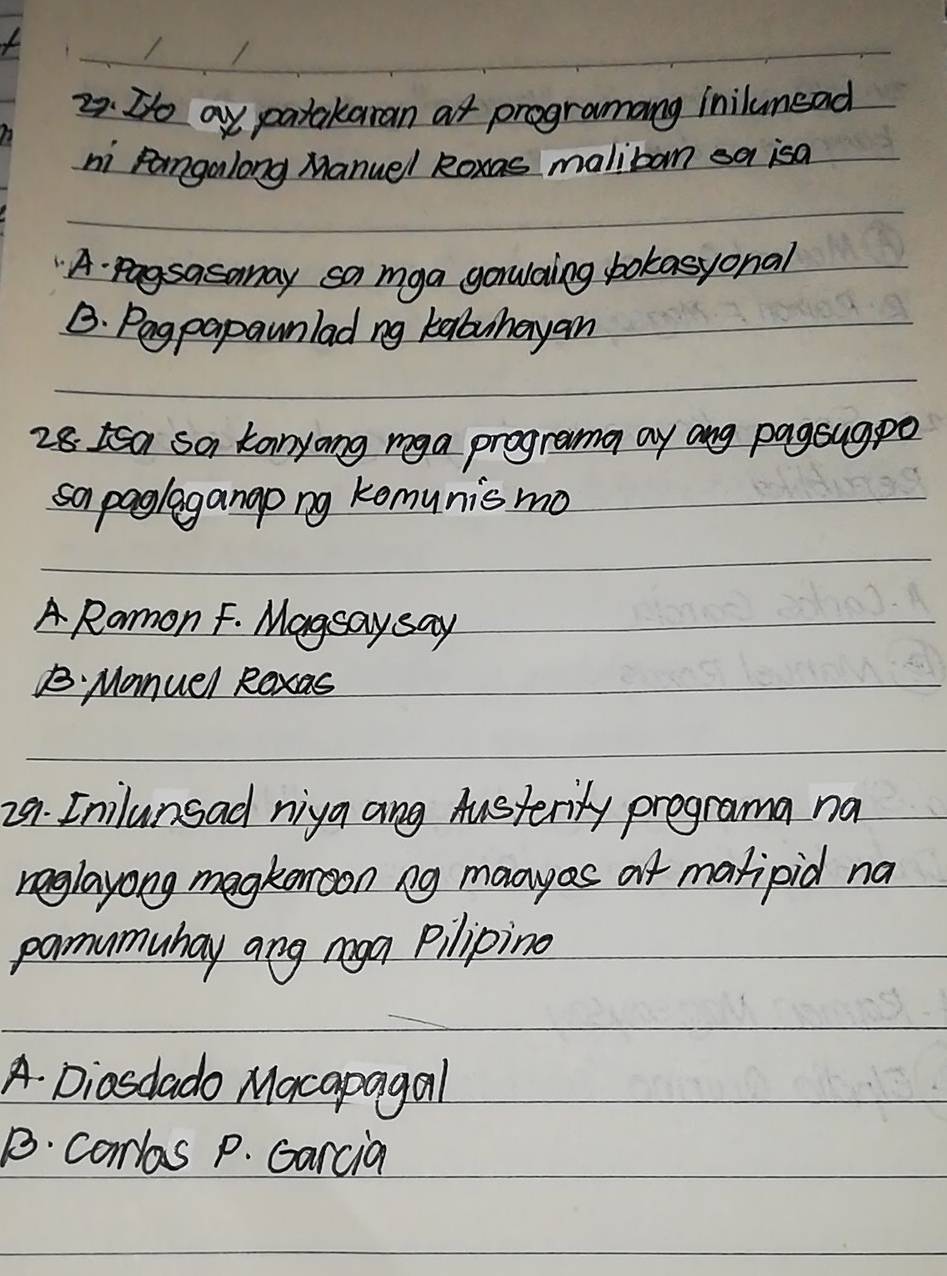 27. Ito ay patakaran at programang inilunsad
ni Pangulong Manuel Roxas maliban sa isa
A. Pagsasanay sa mga gawaing bokasyonal
B. Pagpapaunlad ng kabuhayan
28. Isa sa kanyang mga programa ay ang pagsugpo
sa paglaganap ng komunismo
A. Ramon F. Magsaysay
B. Manuel Roxas
29. Inilunsad niya ang Austerity programa na
naglayong magkaroon ng maayos at matipid na
pamumuhay ang mga Pilipino
A. Diosdado Macapagal
B. Carlos P. Garcia